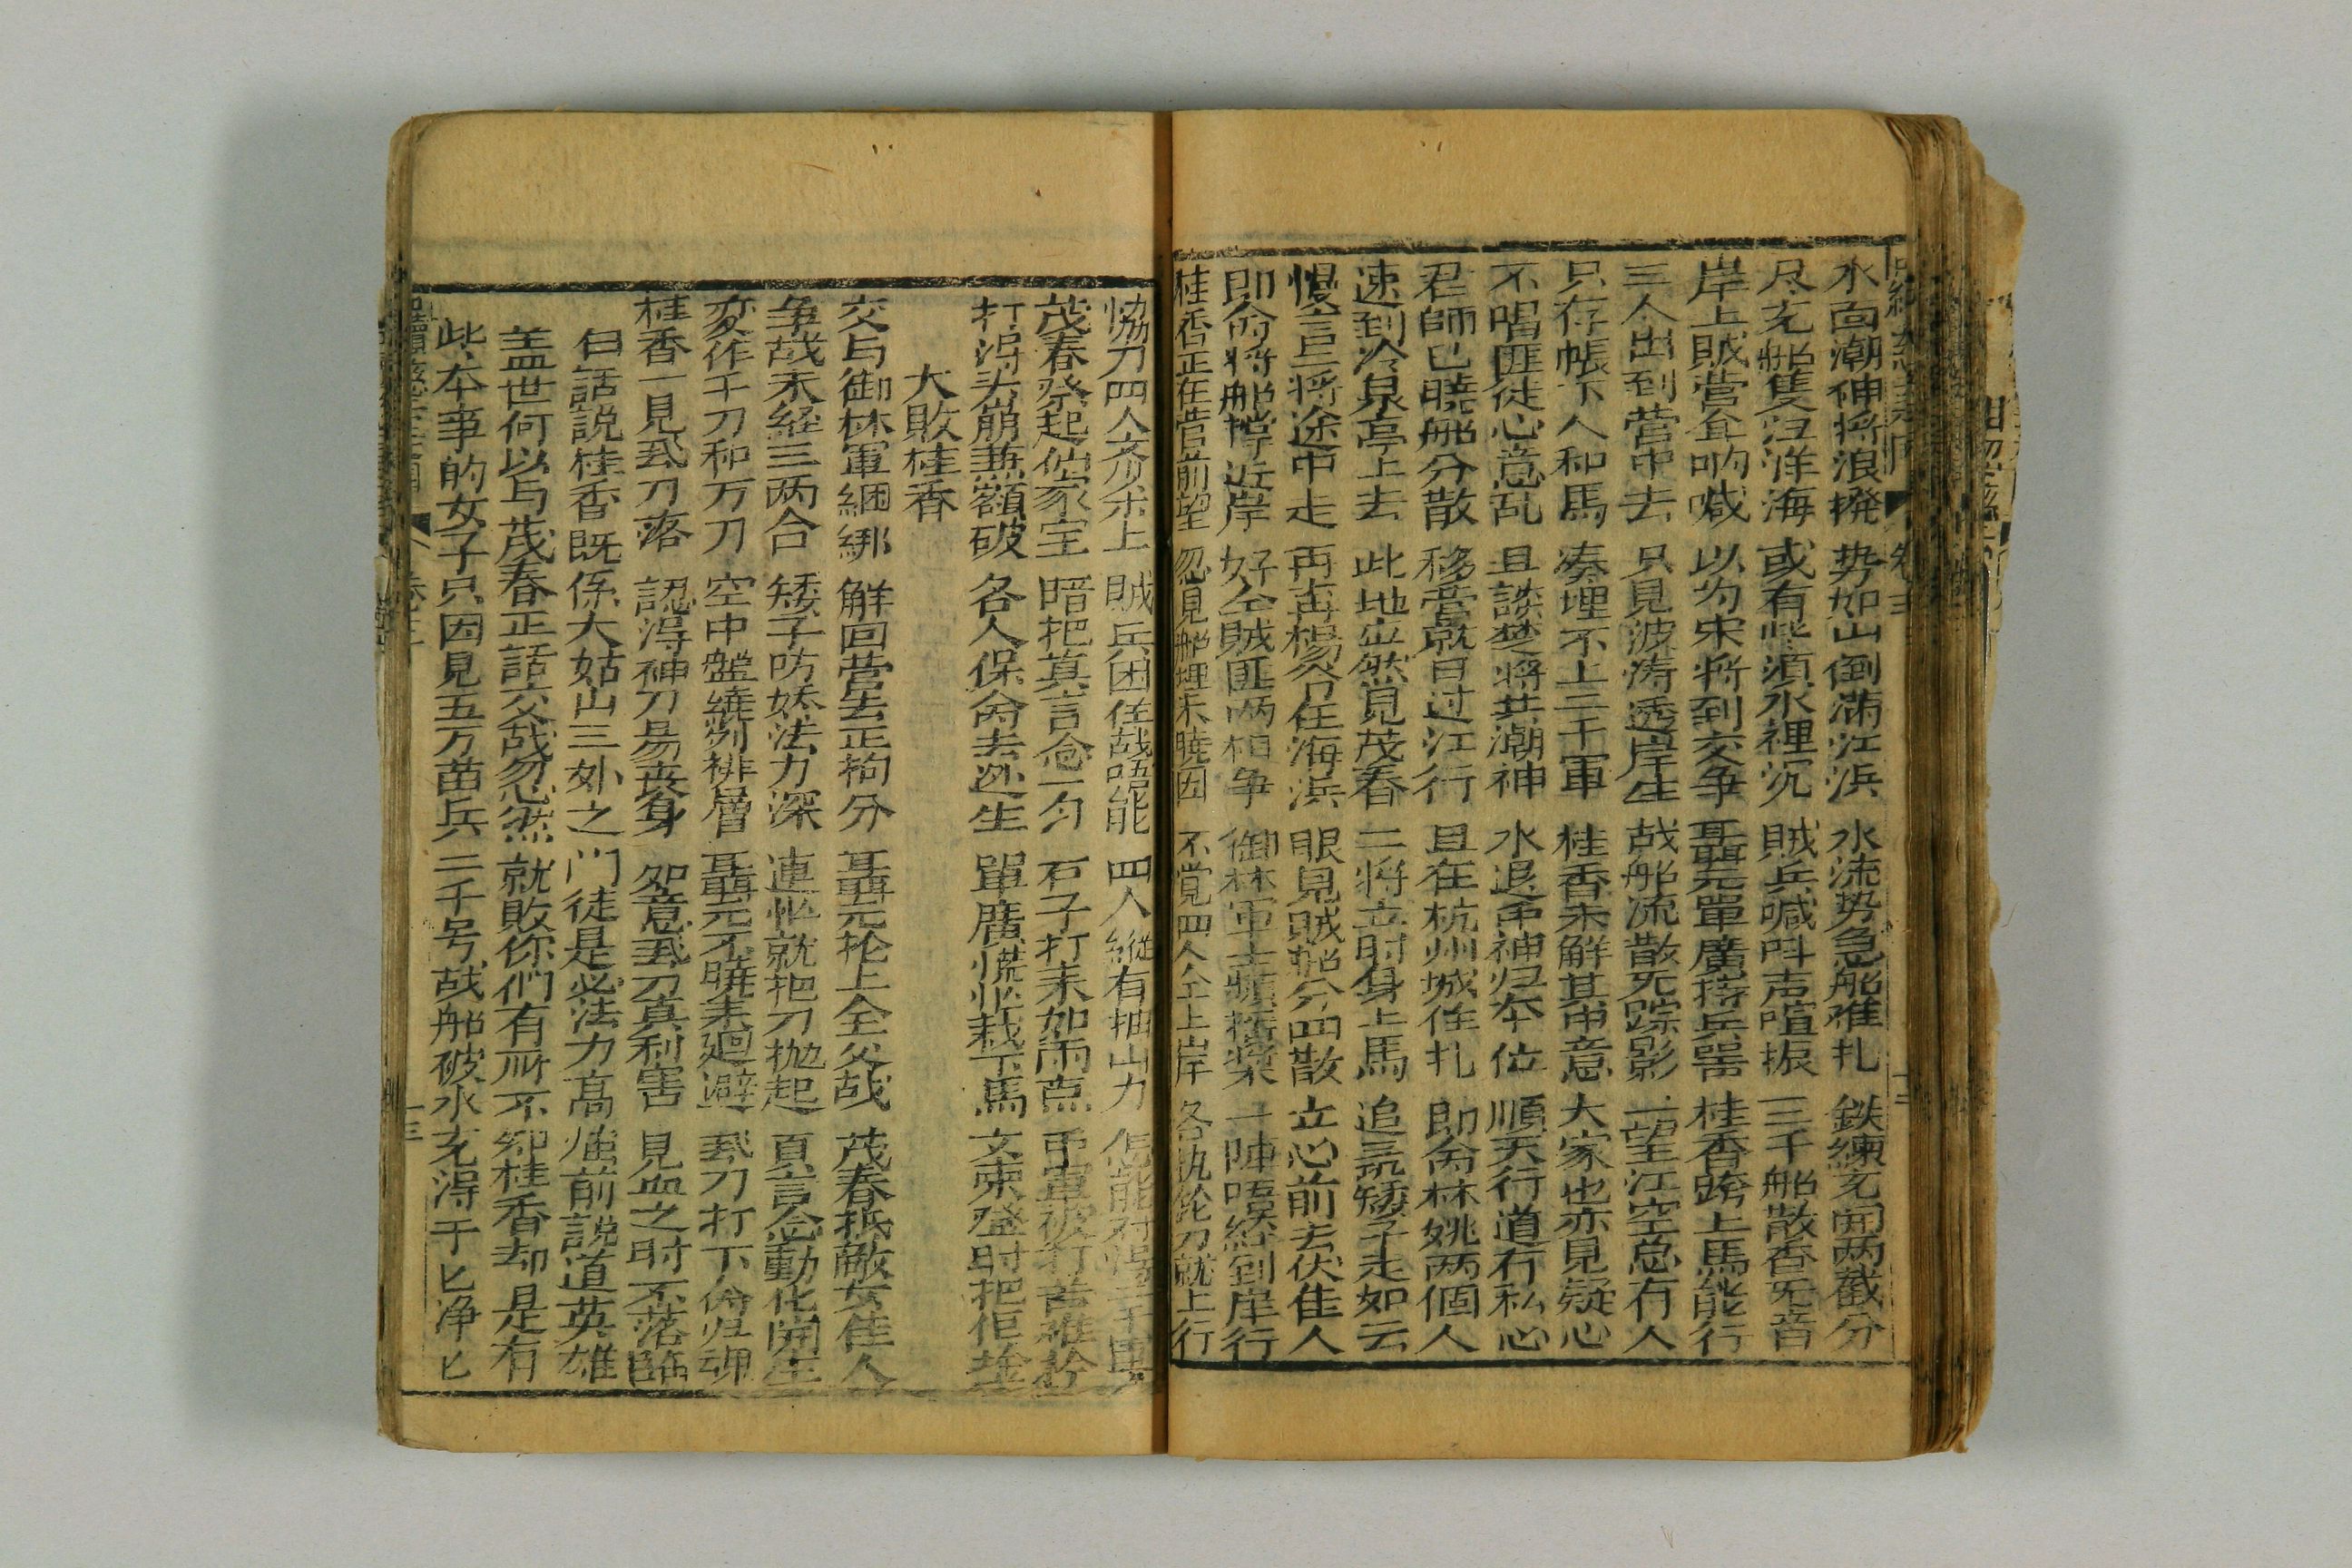 水面潮神将浪撥 势如山倒满江浜 水流势急船难扎 鉄練充開两截分
尽充船隻汪洋海 或有些湏水裡沉 賊兵喊呌声喧振 三千船散香旡音
岸上賊营仝吶喊 以为宋将到交争 聶元單廣持兵器 桂香跨上馬能行
三人出到营中去 只見波涛透岸生 战船流散旡踪影 一望江空总冇人
只存帳下人和馬 凑埋不上二千軍 桂香未解其中意 大家也亦見疑心
不唱匪徒心意乱 且談楚将共潮神 水退潮神归本位 順天行道冇私心
君師已曉船分散 移营就日过江行 且在杭州城住扎 即命林姚两個人
速到冷泉亭上去 此地岦然見茂春 二将立时身上馬 追尋矮子走如云
慢言二将途中走 再冉楊公在海浜 眼見賊船分四散 立心前去伏佳人
即命将船撑近岸 好仝賊匪两相争 御林軍士 一陣唔 到岸行
桂香正在营前望 忽見船埋未曉因 不觉四人仝上岸 各执 刀就上行
恊力四人齐杀上 賊兵困住战唔能 四人縱有抽山力 怎能对得二千兵
茂春祭起仙家宝 暗把真言念一匀 石子打来如雨点 苗軍被打苦难
打得头崩兼額破 各人保命去逃生 單廣慌忙栽下馬 文東登时把佢
大敗桂香
交与御林軍綑綁 解回营去正拘分 聶元抡上仝父战 茂春抵敵女佳人
争战未経三两合 矮子妨妖法力深 連忙就把刀抛起 真言念動化開生
変作千刀和万刀 空中盤繞列排層 聶元不曉来廻避 卦刀打下命归
桂香一見卦刀落 認得神刀易丧身 如意卦刀真利害 見血之时不落臨
白話説桂香既係大姑山三外之门徒是必法力高強前説道英雄
盖世何以与茂春正話交战忽然就敗你們有所不知桂香却是有
此本事的女子只因見五万苗兵二千号战船破水充得干匕净匕